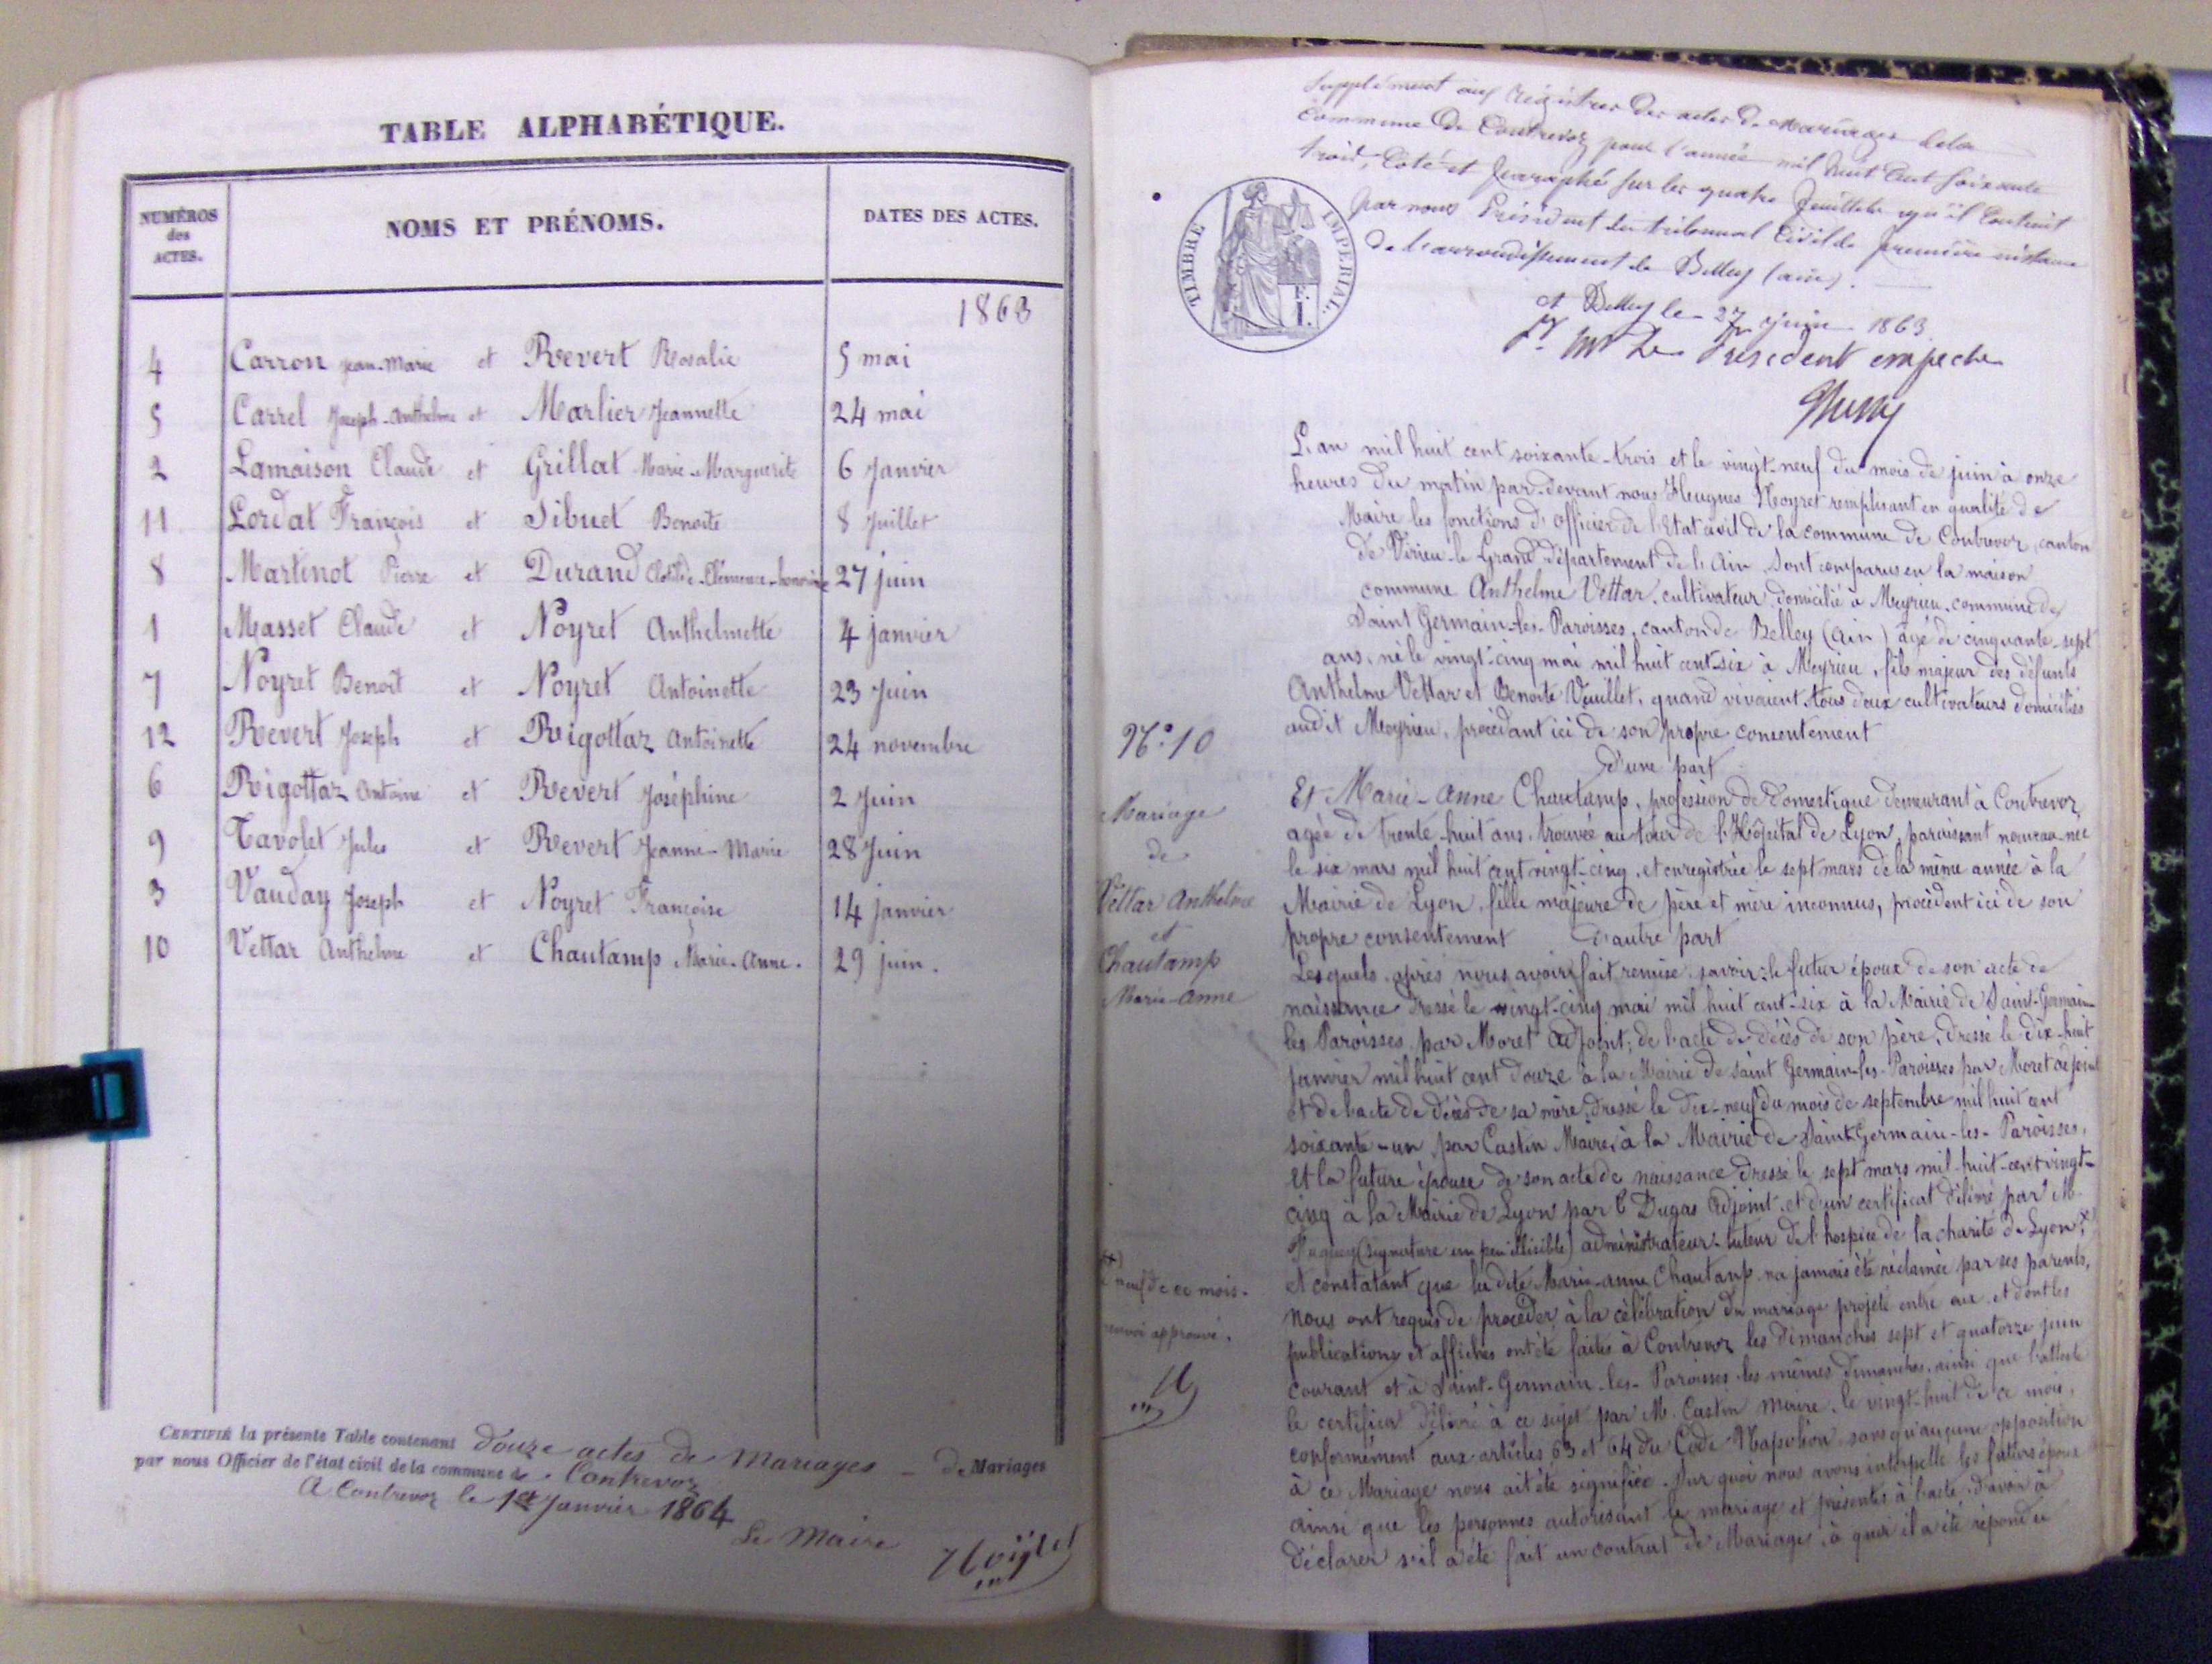 TABLE ALPHABÉTIQUE.
NUMÉROS des ACTES.
NOMS ET PRÉNOMS.
DATES DES ACTES.
1863
4 Carron Jean-Marie et Revert Rosalie 5 mai
5 Carrel Joseph-Anthelme et Marlier Jeannette 24 mai
2 Lamaison Claude et Grillat Marie-Marguerite 6 Janvier
11 Lordat François et Sibuet Benoite 8 Juillet
8 Martinot Pierre et Durand Clotilde-Clémence-honorine 27 juin
1 Masset Claude et Noyret Anthelmette 4 janvier
7 Noyret Benoit et Noyret Antoinette 23 Juin
12 Revert Joseph et Rigottaz Antoinette 24 novembre
6 Rigottaz Antoine et Revert Joséphine 2 Juin
9 Tavolet Jules et Revert Jeanne-Marie 28 Juin
3 Vauday Joseph et Noyret Françoise 14 janvier
10 Vettar Anthelme et Chautamp Marie-Anne. 29 juin.
CERTIFIÉ la présente Table contenant douze actes de Mariages - de Mariages
par nous Officier de l'état civil de la commune de Contrevoz
A Contrevoz le 1er Janvier 1864
Le Maire
Noyret
Supplément aux Régistres des actes de Mariages de la
Commune de Contrevoz pour l'année mil huit Cent soixante
trois, Coté et Paraphé sur les quatre feuillets qu'il Contient
par nous Président du tribunal Civil de première instance
de l'arrondissement de Belley (ain).
TIMBRE IMPÉRIAL.
E. I.
A Belley le 27 Juin 1863
Pr Mr Le Président empeché
L'an mil huit cent soixante-trois et le vingt-neuf du mois de juin à onze
heures du matin par-devant nous Heugues Noyret remplissant en qualité de
Maire les fonctions d'officier de l'Etat civil de la commune de Contrevoz, canton
de Virieu-le-Grand, département de l'Ain, sont comparus en la maison
commune Anthelme Vettar, cultivateur, domicilié à Meyrieu, commune de
Saint Germain-les-Paroisses, canton de Belley (Ain) âgé de cinquante-sept
ans, né le vingt-cinq mai mil huit cent-six à Meyrieu, fils majeur des défunts
Anthelme Vettar et Benoite Veuillet, quand vivaient tous deux cultivateurs domiciliés
audit Meyrieu, procédant ici de son propre consentement
d'une part
N° 10
Mariage
de
Vettar Anthelme
et
Chautamp
Marie-Anne
Et Marie-Anne Chautamp, profession de domestique demeurant à Contrevoz,
agée de trente-huit ans, trouvée au tour de l'Hôpital de Lyon, paraissant nouveau-née
le six mars mil huit cent vingt-cinq, et enregistrée le sept mars de la même année à la
Mairie de Lyon, fille majeure de père et mère inconnus, procédent ici de son
propre consentement d'autre part
Lesquels, après nous avoir fait remise, savoir: le futur époux de son acte de
naissance dressé le vingt-cinq mai mil huit cent-six à la Mairie de Saint-Germain-
les Paroisses, par Moret Adjoint; de l'acte de décès de son père, dressé le dix-huit
janvier mil huit cent douze à la Mairie de Saint Germain-les-Paroisses par Moret adjoint
et de l'acte de décès de sa mère, dressé le dix-neuf du mois de septembre mil huit cent
soixante-un par Castin Maire, à la Mairie de Saint Germain-les-Paroisses,
et la future épouse de son acte de naissance dressé le sept mars mil-huit-cent vingt-
cinq à la Mairie de Lyon par Dugas Adjoint, et d'un certificat délivré par M.
(Signature un peu illisible) administrateur-tuteur de l'hospice de la charité de Lyon, x
et constatant que la dite Marie-Anne Chautamp n'a jamais été réclamée par ses parents,
nous ont requis de procéder à la célébration du mariage projeté entre eux et dont les
publications et affiches ont été faites à Contrevoz les dimanches sept et quatorze juin
courant et à Saint-Germain-les-Paroisses les mêmes dimanches, ainsi que l'atteste
le certificat délivré à ce sujet par M. Castin Maire, le vingt-huit de ce mois,
conformément aux articles 63 et 64 du Code Napoléon, sans qu'aucune opposition
à ce Mariage nous ait été signifiée. Sur quoi nous avons interpellé les futurs époux
ainsi que les personnes autorisant le mariage et présentes à l'acte, d'avoir à
déclarer s'il a été fait un contrat de Mariage, à quoi il a été répondu
(x)
neuf de ce mois.
renvoi approuvé.